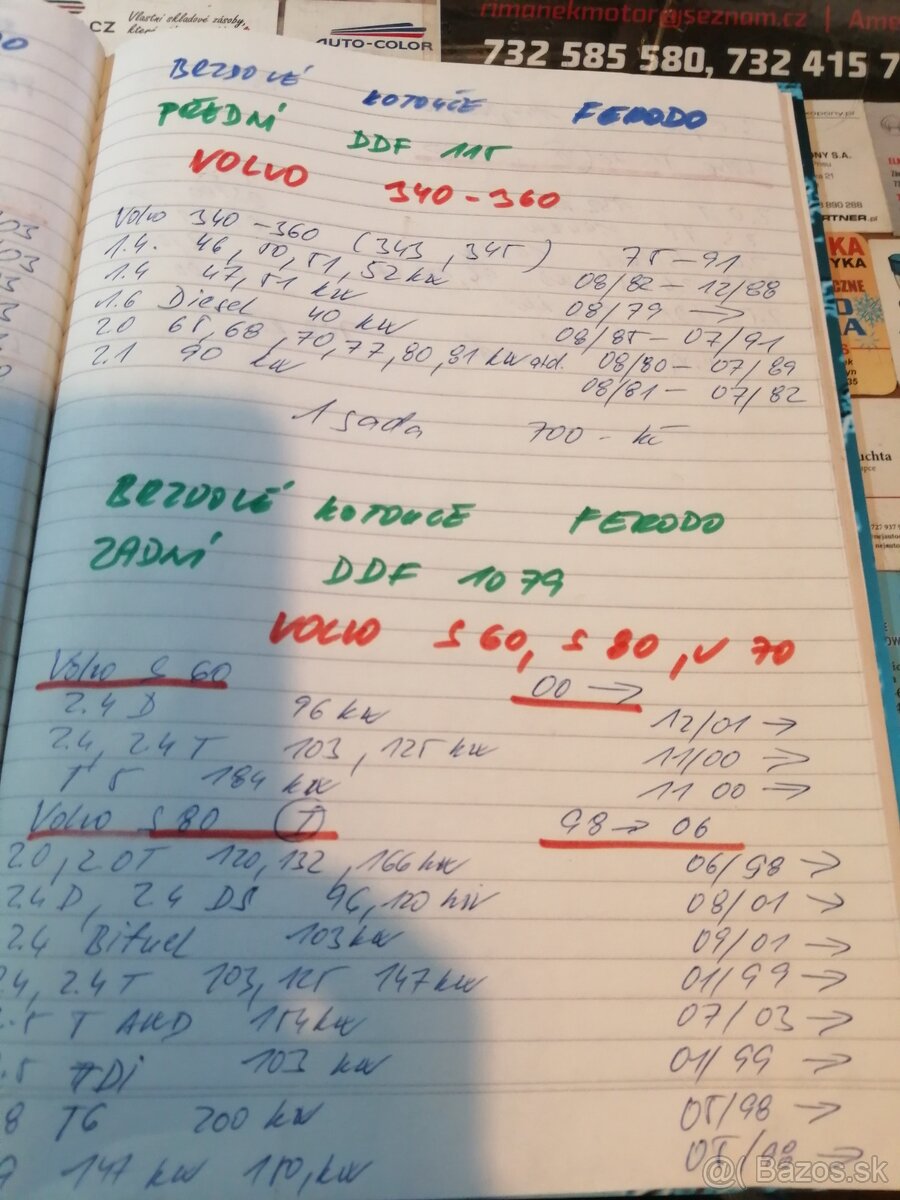 CZ
Vlastní skladové zásoby,
AUTO-COLOR
rimanekmotor@seznam.cz |
732 585 580, 732 415 7
BRZDOVÉ KOTOUČE FERODO
PŘEDNÍ DDF 115
VOLVO 340-360
Volvo 340-360 (343, 345) 75-91
1.4. 46, 50, 51, 52 kw 08/82 - 12/88
1.4 47, 51 kw 08/79 →
1.6 Diesel 40 kw 08/85 - 07/91
2.0 65, 68, 70, 77, 80, 81 kw 08/80 - 07/89
2.1 90 kw 08/81 - 07/82
1 sada 700 - kč
BRZDOVÉ KOTOUČE FERODO
ZADNÍ DDF 1079
VOLVO S 60, S 80, V 70
Volvo S 60 00 →
2.4 D 96 kw 12/01 →
2.4, 2.4 T 103, 125 kw 11/00 →
T 5 184 kw 11 00 →
Volvo S 80 98 → 06
2.0, 2.0T 120, 132, 166 kw 06/98 →
2.4 D, 2.4 D5 96, 120 kw 08/01 →
2.4 Bifuel 103 kw 09/01 →
4, 2.4 T 103, 125 147 kw 01/99 →
.5 T AWD 154 kw 07/03 →
.5 TDi 103 kw 01/99 →
8 T6 200 kw 05/98 →
9 147 kw 150, kw
ONY S.A.
890 288
ARTNER.pl
KA
YKA
CZNE
uchta
@( Bazos.sk